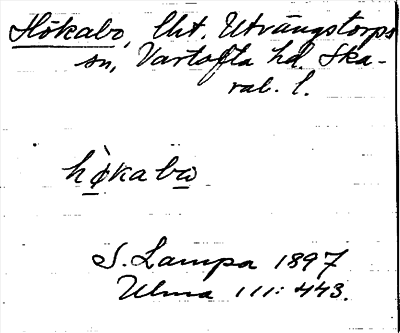 Hökabo, lht. Utvängstorps
sn, Vartofta hd. Ska-
rab. l.
hø̀kabo
S. Lampa 1897
Ulma 111: 443.